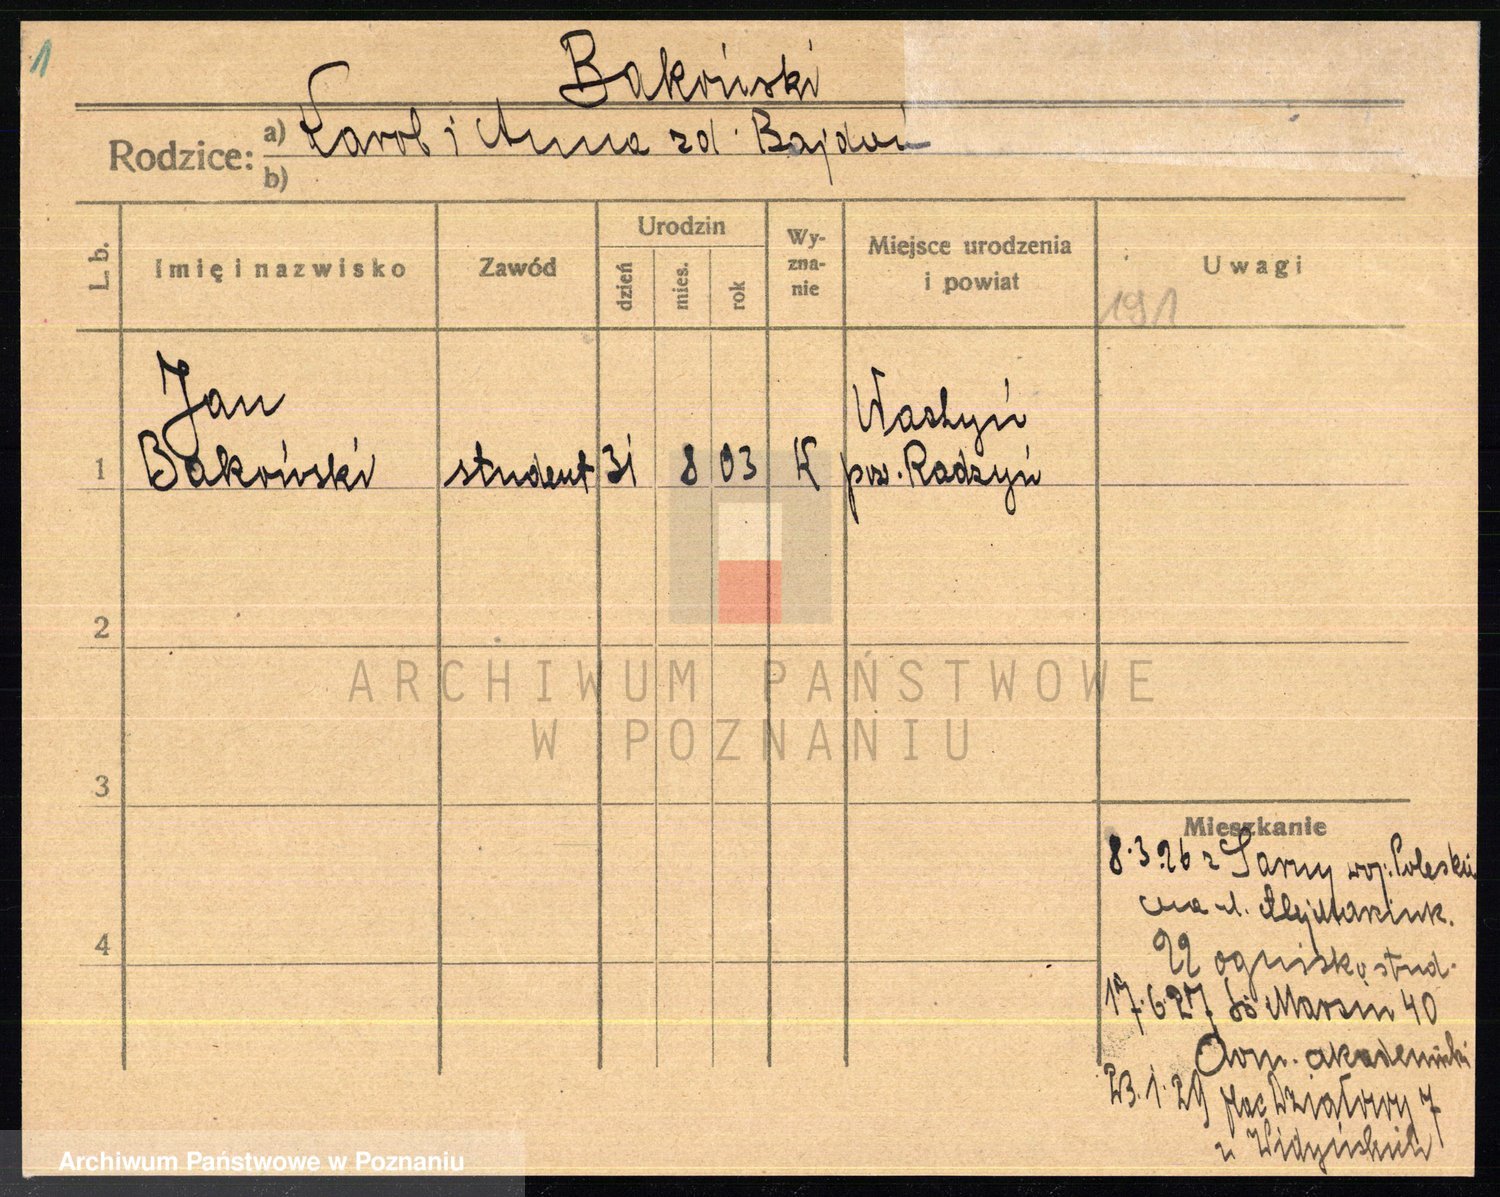 1
Bakoński
Rodzice: a) Karol i Anna zd. Bajdoń
b)
L. b.
Imię i nazwisko
Zawód
Urodzin
dzień
mies.
rok
Wy-
zna-
nie
Miejsce urodzenia
i powiat
Uwagi
191
1
Jan
Bakoński
student
31
8
03
K
pow. Radzyń
2
3
4
ARCHIWUM PAŃSTWOWE
W POZNANIU
Mieszkanie
8.3.26 z Sarny woj. Poleskie
22 ognisko stud.
17.6.27 Św Marcin 40
Dom. akademicki
23.1.29 plac Działowy 7
Archiwum Państwowe w Poznaniu